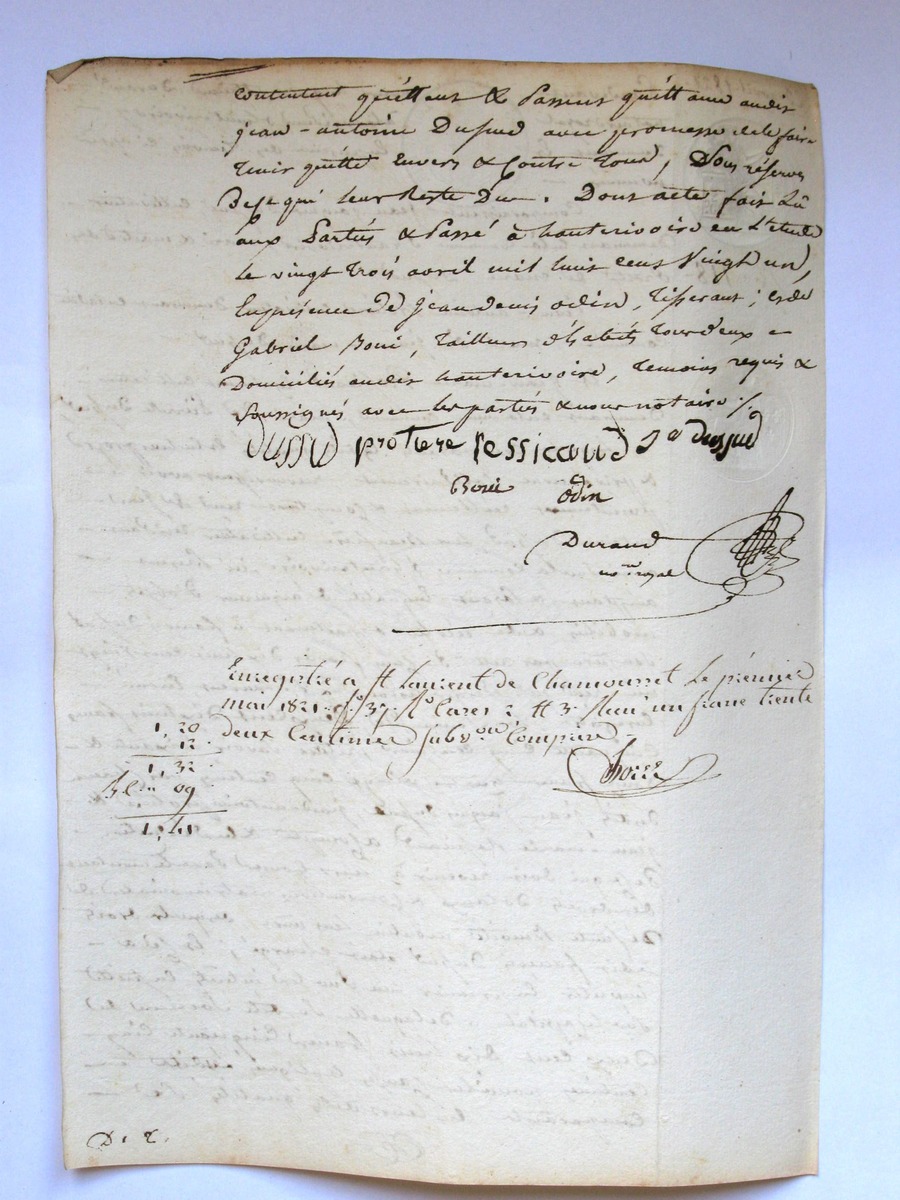 contentent quittent & Passent quittance audit
jean-antoine Dussud avec promesse de le faire
tenir quitte Envers & Contre Tous, Sous réserve
De ce qui leur Reste Du. Dont acte fait Lû
aux Partiés & Passé à hauterivoire en L'étude
Le vingt Trois avril mil huit cent Vingt un,
En présence de jean denis odin, Tisserant; et de
Gabriel Boni, Tailleur d'habits Tous deux
Domiciliés audit hauterivoire, Temoins requis &
Soussignés avec les partiés & nous notaire
Dussud protiere Pessicaud Ja dussud
Boni odin
Durand
nore royal
Enregistré a St Laurent de Chamousset Le prémier
mai 1821 fo 37 Ro Cases 2 & 3 Reçu un franc trente
deux Centimes subvon Comprise
1,20
12
1,32
09
1,41
D. R.